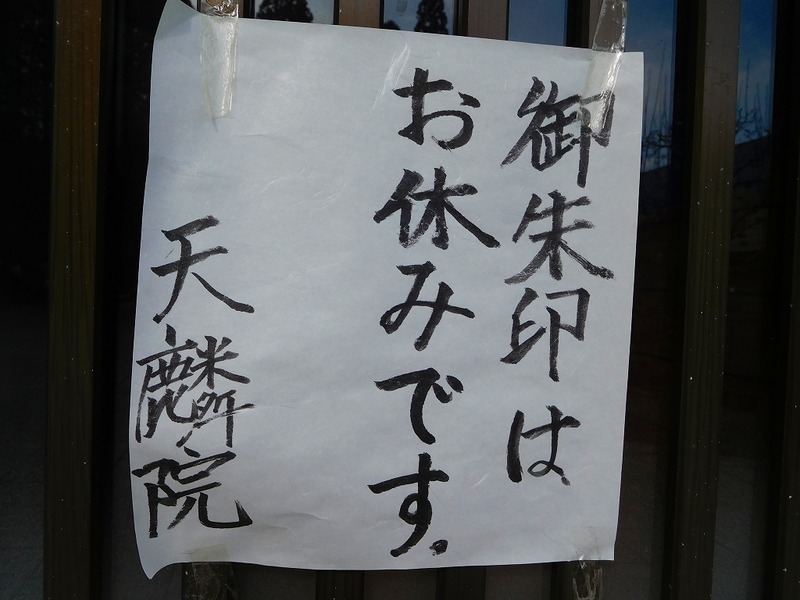 御朱印は
お休みです.
天麟院